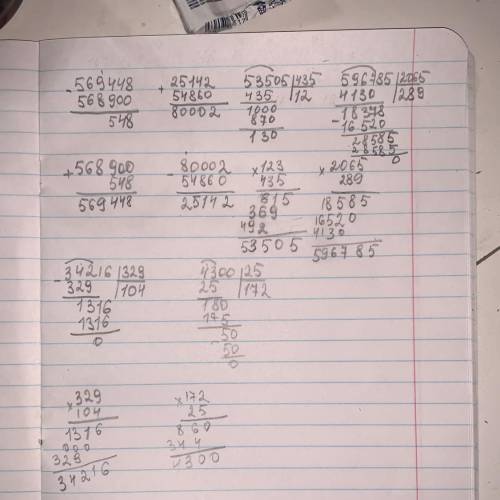 -569448 +25142 53505|435 596785|2065
568900 54860 435 |12 4130 |289
548 80002 1000 -18378
870 16520
130 28585
28585
0
+568900 -80002 ×123 ×2065
548 54860 435 289
569448 25142 815 18585
369 16520
492 4130
53505 596785
-34216|329 4300|25
329 |104 25 |172
1316 180
1316 175
0 50
50
0
×329 ×172
104 25
1316 860
000 344
329 4300
34216